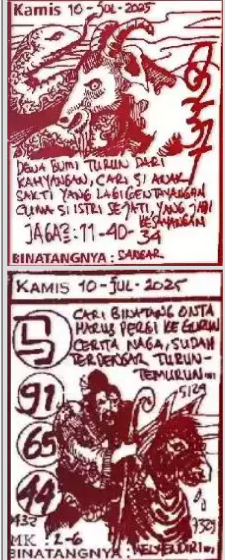 Kamis 10-JUL-2025
DEWA BUMI TURUN DARI
KAHYANGAN, CARI SI ANAK
SAKTI YANG LAGI GENTAYANGAN
CUMA SI ISTRI SEJATI, YANG JADI
KESAYANGAN
JAGA2: 11-40-34
BINATANGNYA: SANGAR
KAMIS 10-JUL-2025
CARI BINATANG ONTA
HARUS PERGI KE GURUN
CERITA NAGA, SUDAH
TERDENGAR TURUN-
TEMURUN...
5129
5
91
65
44
432
7329
MK: 2-6
BINATANGNYA: